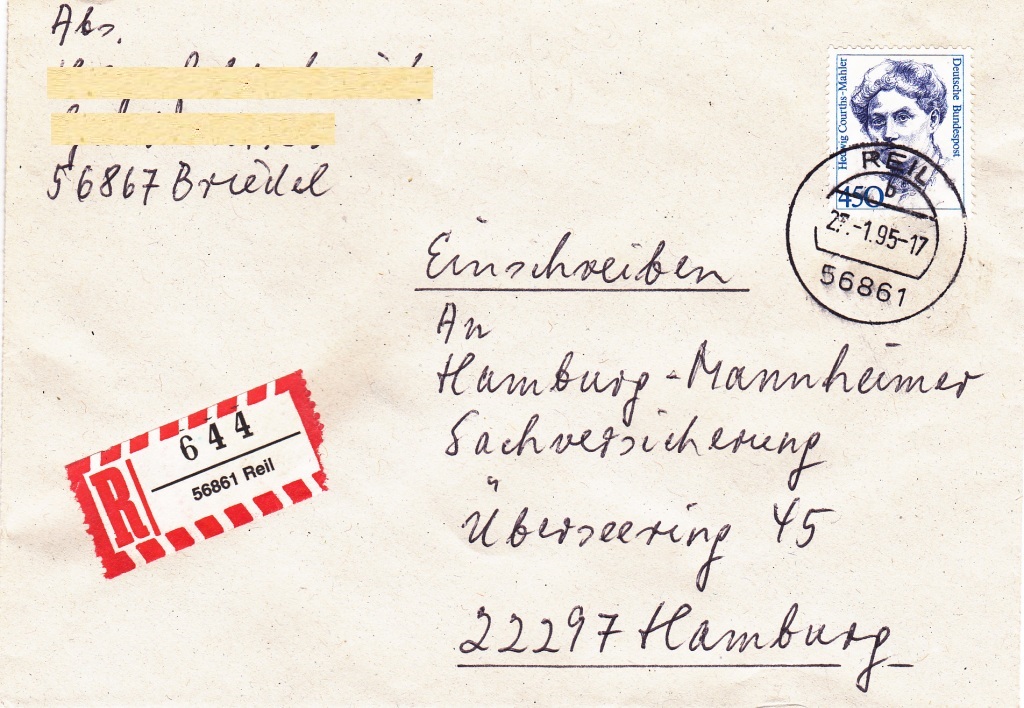 Abs.
56867 Briedel
Hedwig Courths-Mahler
Deutsche Bundespost
450
REIL
b
-1.95-17
56861
Einschreiben
An
Hamburg-Mannheimer
Sachversicherung
Überseering 45
22297 Hamburg
R
644
56861 Reil